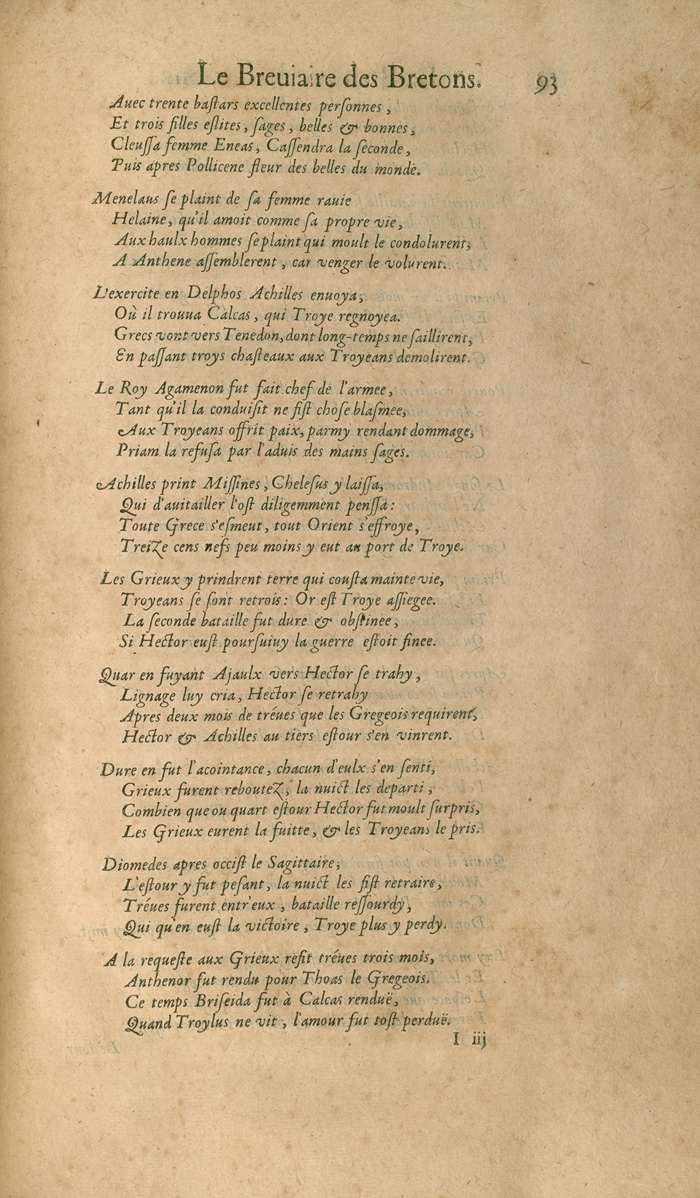 Le Breuiaire des Bretons. 93
Auec trente baſtars excellentes perſonnes,
Et trois filles eſlites, ſages, belles & bonnes,
Cleuſſa femme Eneas, Caſſendra la ſeconde,
Puis apres Pollicene fleur des belles du monde.
Menelaus ſe plaint de ſa femme rauie
Helaine, qu'il amoit comme ſa propre vie,
Aux haulx hommes ſe plaint qui moult le condolurent,
A Anthene aſſemblerent, car venger le volurent.
L'exercite en Delphos Achilles enuoya,
Où il trouua Calcas, qui Troye regnoyea.
Grecs vont vers Tenedon, dont long-temps ne ſaillirent,
En paſſant troys chaſteaux aux Troyeans demolirent.
Le Roy Agamenon fut fait chef de l'armee,
Tant qu'il la conduiſit ne fiſt choſe blaſmee,
Aux Troyeans offrit paix, parmy rendant dommage,
Priam la refuſa par l'aduis des mains ſages.
Achilles print Miſſines, Cheleſus y laiſſa,
Qui d'auitailler l'oſt diligemment penſſa:
Toute Grece s'eſmeut, tout Orient s'effroye,
Treize cens nefs peu moins y eut au port de Troye.
Les Grieux y prindrent terre qui couſta mainte vie,
Troyeans ſe ſont retrois: Or eſt Troye aſſiegee.
La ſeconde bataille fut dure & obſtinee,
Si Hector euſt pourſuiuy la guerre eſtoit finee.
Quar en fuyant Ajaulx vers Hector ſe trahy,
Lignage luy cria, Hector ſe retrahy
Apres deux mois de tréues que les Gregeois requirent,
Hector & Achilles au tiers eſtour s'en vinrent.
Dure en fut l'acointance, chacun d'eulx s'en ſenti,
Grieux furent reboutez, la nuict les departi,
Combien que ou quart eſtour Hector fut moult ſurpris,
Les Grieux eurent la fuitte, & les Troyeans le pris.
Diomedes apres occiſt le Sagittaire,
L'eſtour y fut peſant, la nuict les fiſt retraire,
Tréues furent entr'eux, bataille reſſourdy,
Qui qu'en euſt la victoire, Troye plus y perdy.
A la requeſte aux Grieux refit tréues trois mois,
Anthenor fut rendu pour Thoas le Gregeois.
Ce temps Briſeida fut à Calcas renduë,
Quand Troylus ne vit, l'amour fut toſt perduë.
I iij